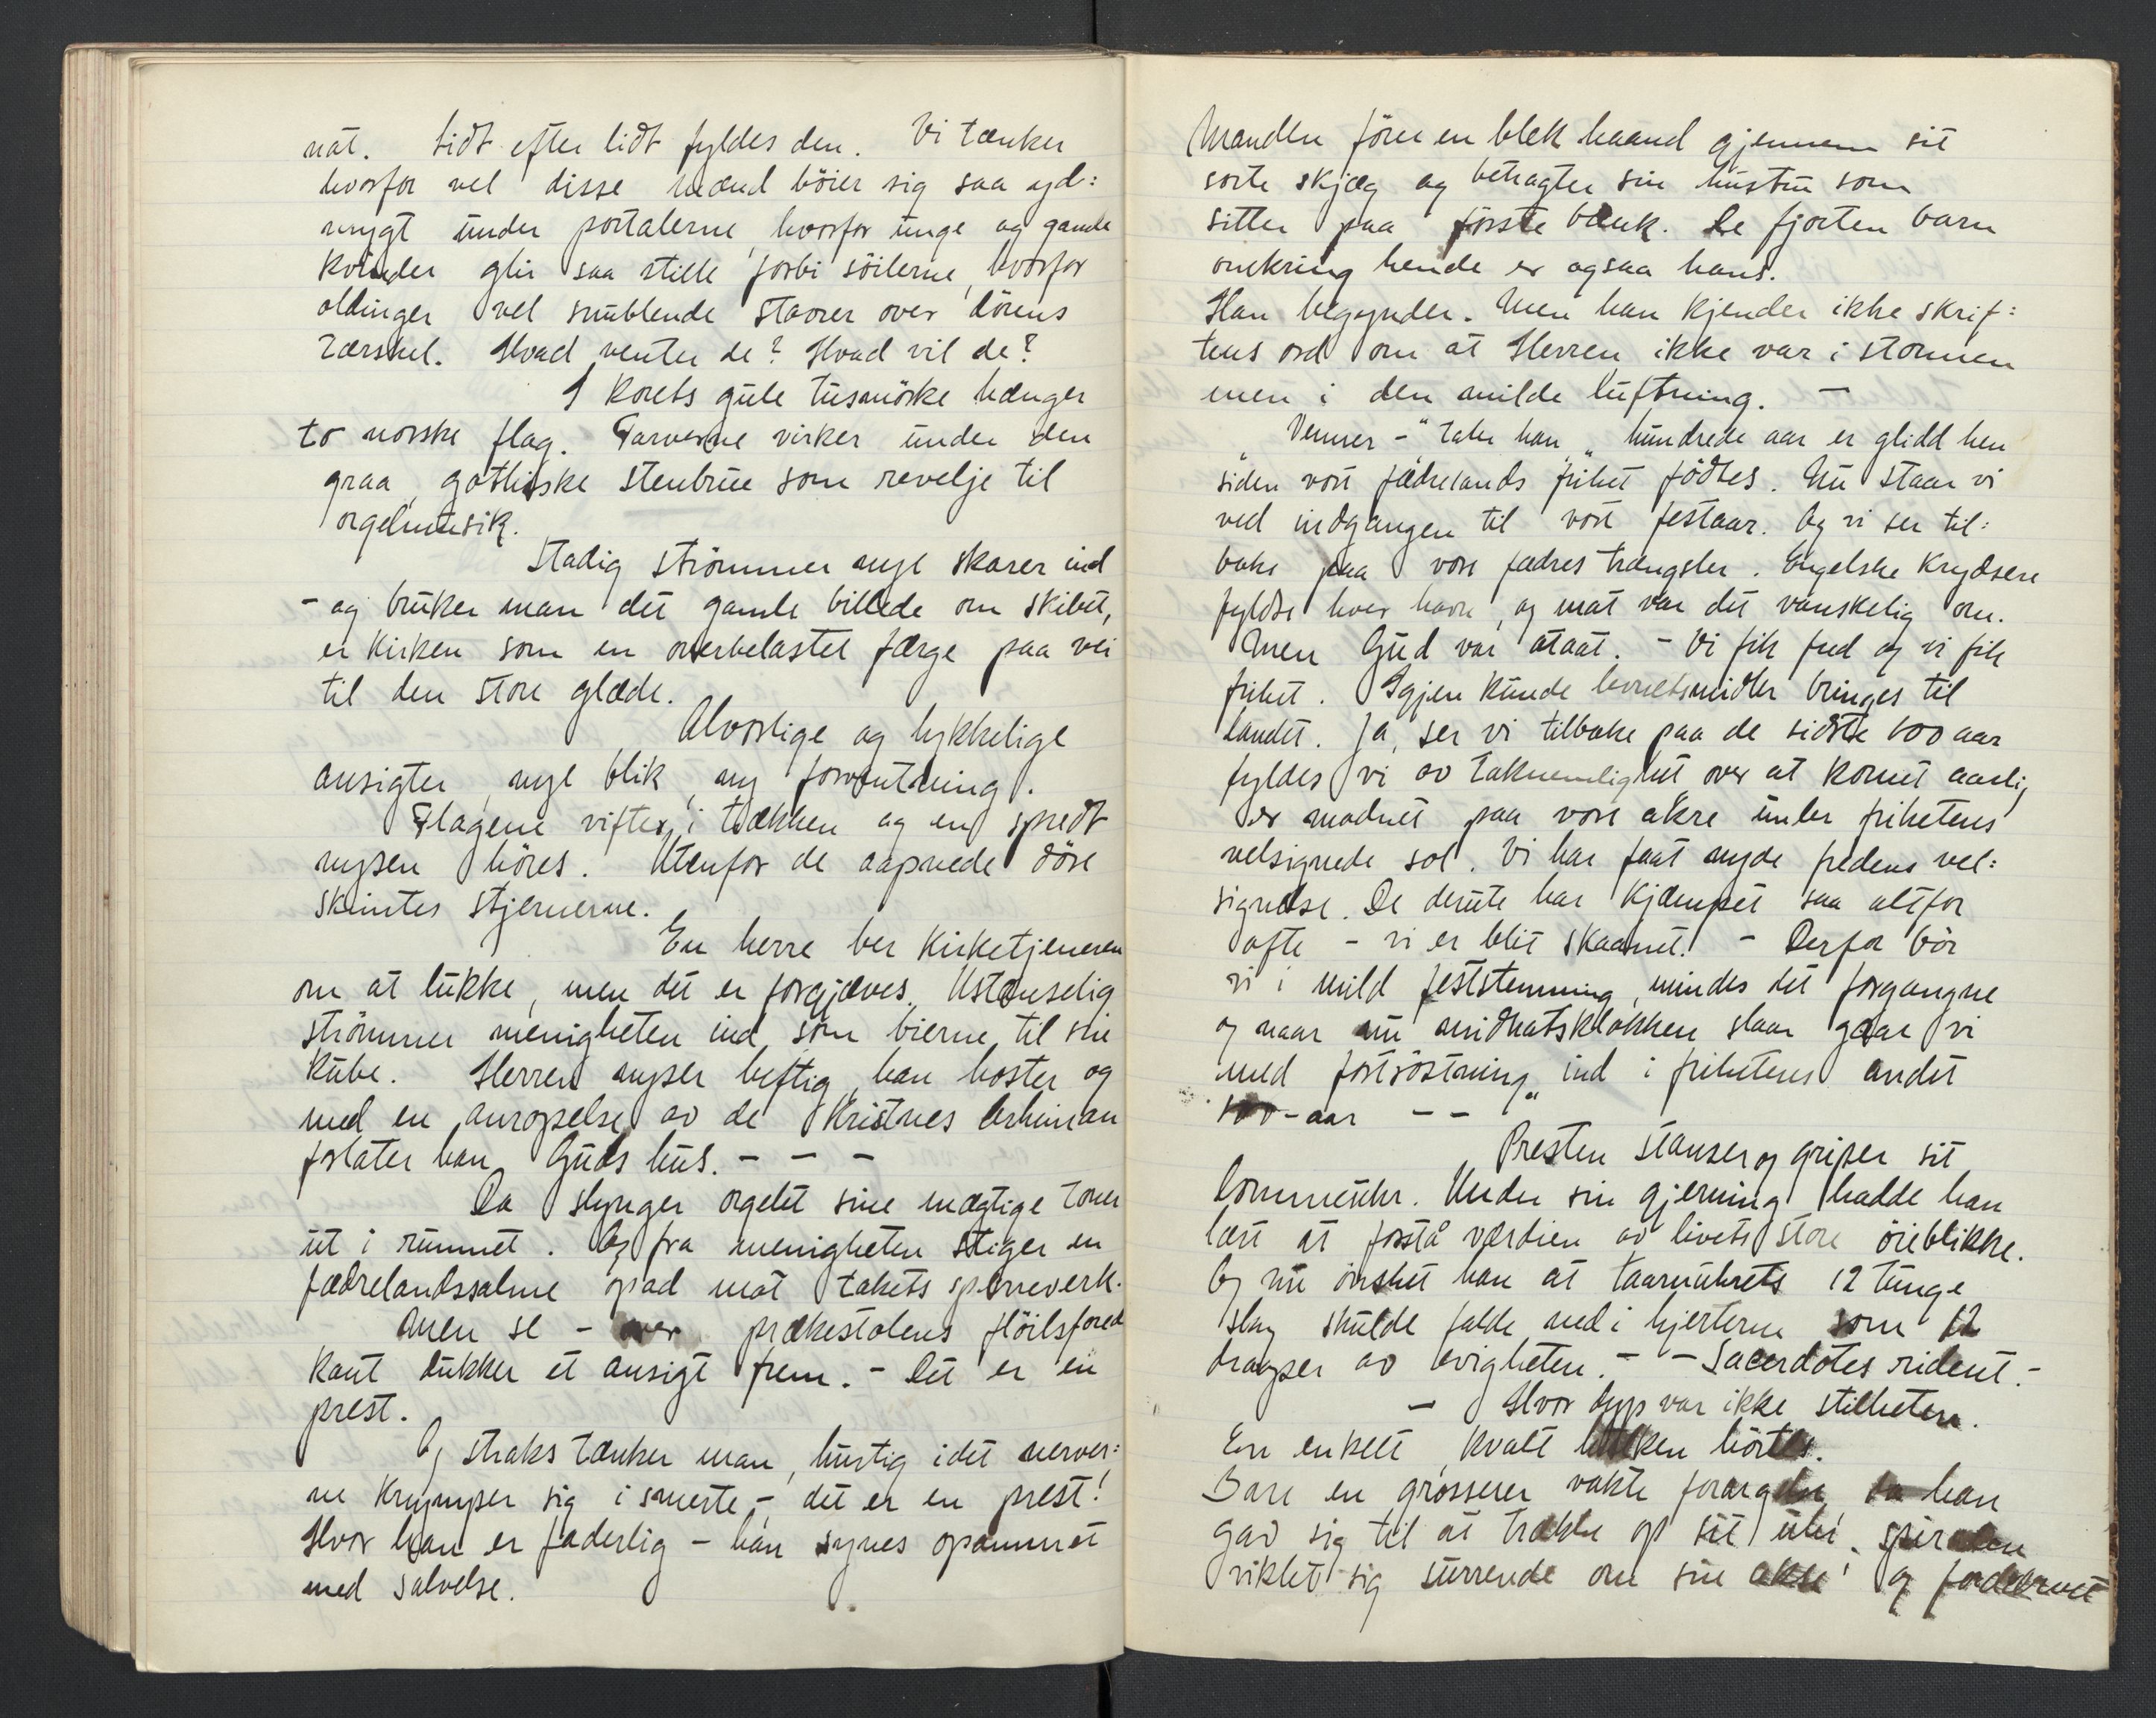 nat. Lidt efter lidt fyldes den. Vi tænker
hvorfor vel disse mænd böier sig saa yd:
mygt under portalerne, hvorfor unge og gamle
kvinder glir saa stille forbi söilerne, hvorfor
oldinger vel snublende staver over dörens
tærskel. Hvad venter de? Hvad vil de?
I korets gule tusmörke hænger
to norske flag. Farverne virker under den
graa, gothiske stenbue som revelje til
orgelmusik.
Stadig strömmer nye skarer ind
- og bruker man det gamle billede om skibet,
er kirken som en overbelastet færge paa vei
til den store glæde.
Alvorlige og lykkelige
ansigter, nye blik, ny forventning.
Flagene vifter i trækken og en spredt
nysen höres. Utenfor de aapnede döre
skimtes stjernerne.
En herre ber kirketjeneren
om at lukke, men det er forgjæves. Ustanselig
strömmer menigheten ind som bierne til sin
kube. Herren nyser heftig, han hoster og
med en anropelse av de kristnes Arhiman
forlater han Guds hus. - - -
Da slynger orgelet sine mægtige toner
ut i rummet. Og fra menigheten stiger en
fædrelandssalme opad mot takets sperreverk.
Men se - over prækestolens flöilsfored
kant dukker et ansigt frem. - Det er en
prest.
Og straks tænker man, hurtig idet nerver:
ne krymper sig i smerte, - det er en prest!
Hvor han er faderlig - han synes opammet
med salvelse.
Manden förer en blek haand gjennem sit
sorte skjæg og betragter sin hustru som
sitter paa förste bænk. De fjorten barn
omkring hende er ogsaa hans.
Han begynder. Men han kjender ikke skrif:
tens ord om at Herren ikke var i stormen
men i den milde luftning. -
"Venner -" taler han, "hundrede aar er glidd hen
siden vort fædrelands frihet födtes. Nu staar vi
ved indgangen til vort festaar. Og vi ser til:
bake paa vore fædres trængsler. Engelske krydsere
fyldte hver havn, og mat var det vanskelig om.
Men Gud var ataat. - Vi fik fred og vi fik
frihet. Igjen kunde levnetsmidler bringes til
landet. Ja, ser vi tilbake paa de sidste 100 aar
fyldes vi av taknemlighet over at kornet aarlig
er modnet paa vore akre under frihetens
velsignede sol. Vi har faat nyde fredens vel:
signelse. De derute har kjæmpet saa altfor
ofte - vi er blit skaanet. - Derfor bör
vi i mild feststemning mindes det forgangne
og naar nu midnatsklokken slaar gaar vi
med fortröstning ind i frihetens andet
100-aar - - "
Presten stanser og griper sit
lommeuhr. Under sin gjerning hadde han
lært at forstå værdien av livets store öieblikke.
Og nu önsket han at taarnuhrets 12 tunge
slag skulde falde ned i hjerterne som 12
draaper av evigheten. - - Sacerdotes rident. -
- Hvor dyp var ikke stilheten.
En enkelt, kvalt hulken hörtes.
Bare en grosserer vakte forargelse da han
gav sig til at trække op sit uhr. Spiralen
viklet sig surrende om sin akse og